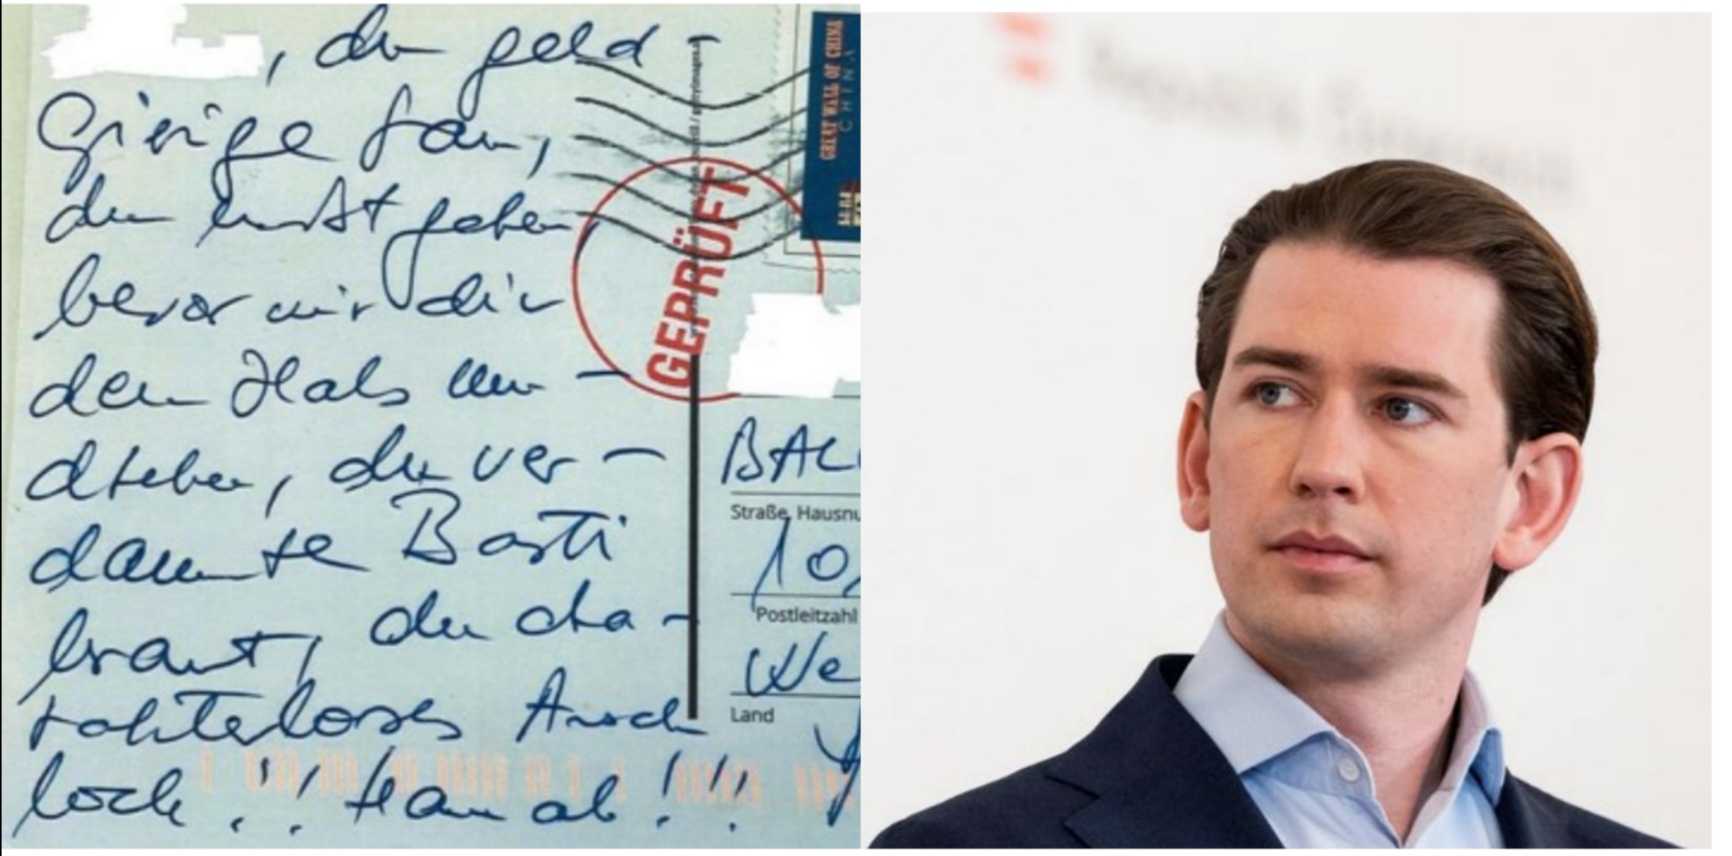 , du geld-
gierige Sau,
du musst gehen,
bevor wir dir
den Hals um-
drehen, du ver-
dammte Basti
braut, du cha-
rakterloses Arsch
loch!!! Hau ab!!!
GEPRÜFT
GREAT WALL OF CHINA
CHINA
BAL
Straße, Hausnu
10,
Postleitzahl
We
Land
Republik Österreich